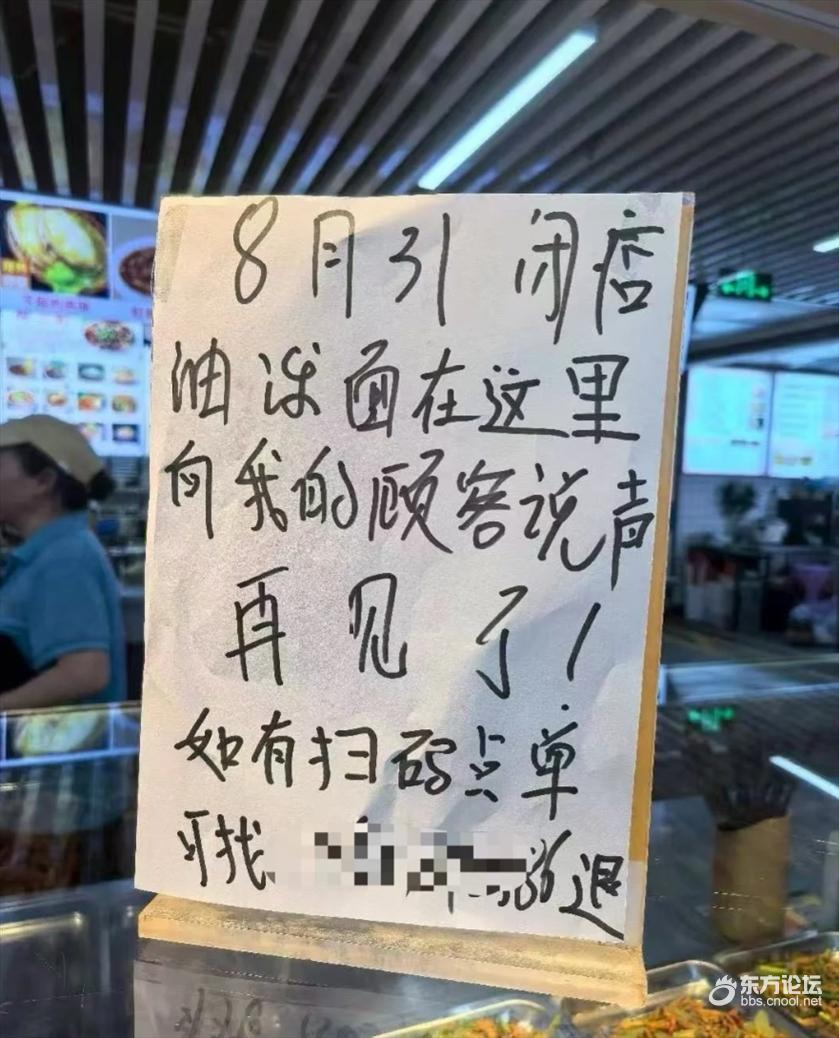 8月31 闭店
油泼面在这里
向我的顾客说声
再见了!
如有扫码点单
可找 退
东方论坛
bbs.cnool.net